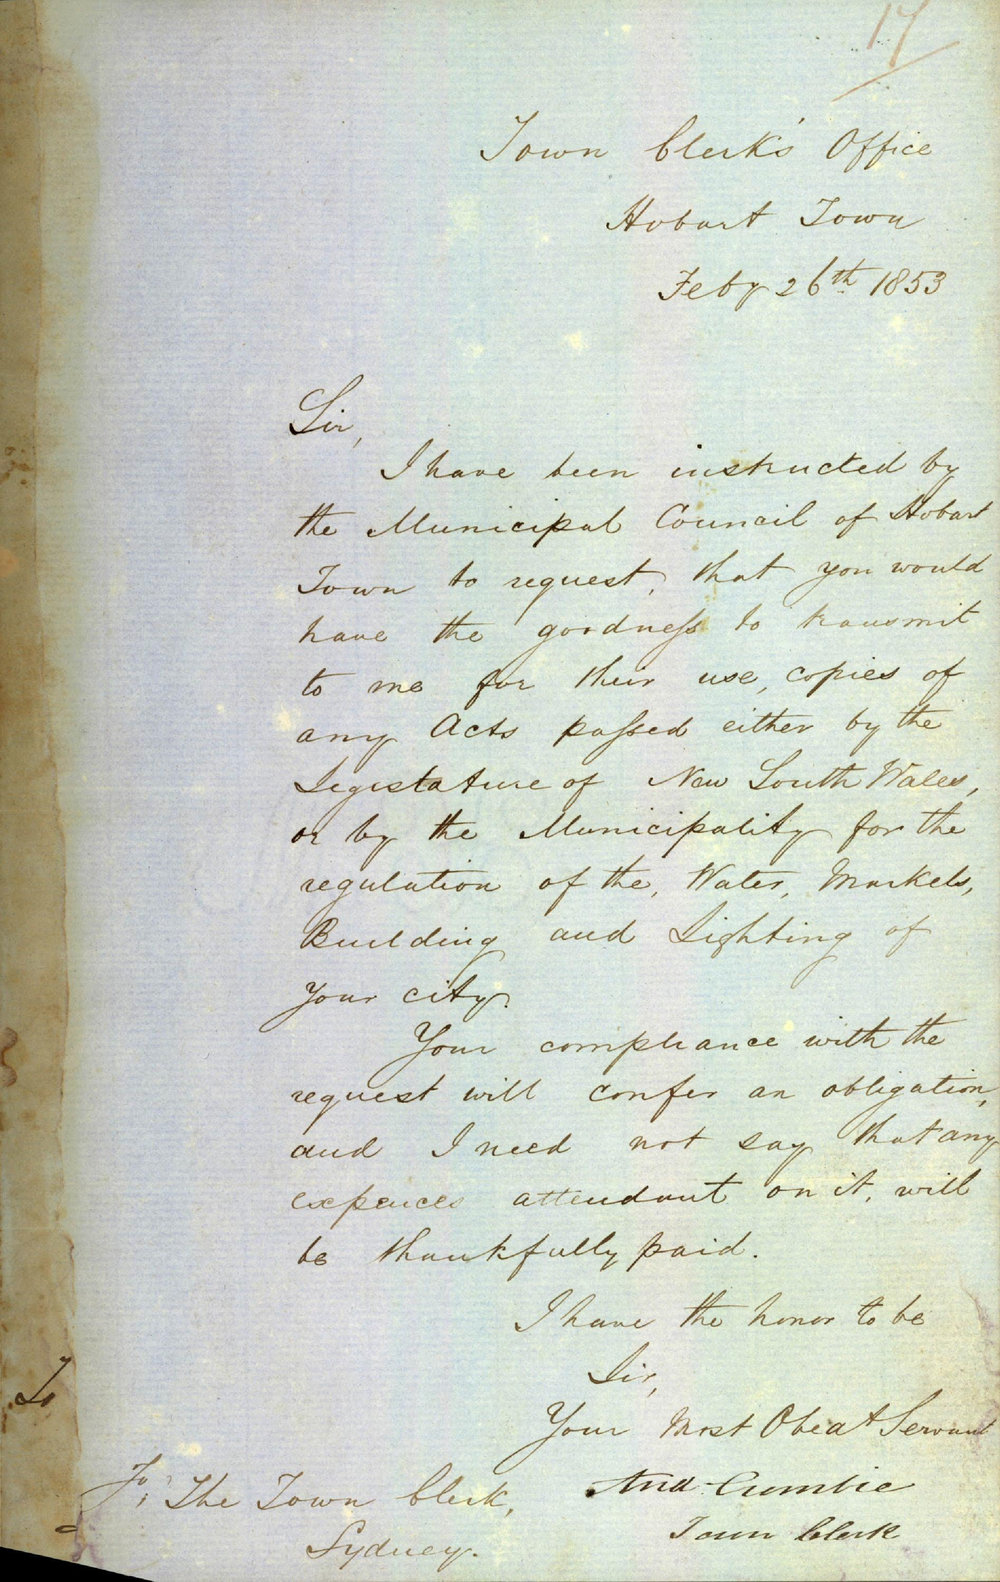 17
Town Clerk's Office
Hobart Town
Feby 26th 1853
Sir,
I have been instructed by
the Municipal Council of Hobart
Town to request, that you would
have the goodness to transmit
to me for their use, copies of
any Acts passed either by the
Legislature of New South Wales,
or by the Municipality for the
regulation of the, Water, Markets,
Building and Lighting of
your city.
Your compliance with the
request will confer an obligation,
and I need not say that any
expences attendant on it, will
be thankfully paid.
I have the honor to be
Sir,
Your Most Obedt Servant
Andw Crombie
Town Clerk
To, The Town Clerk,
Sydney.
To